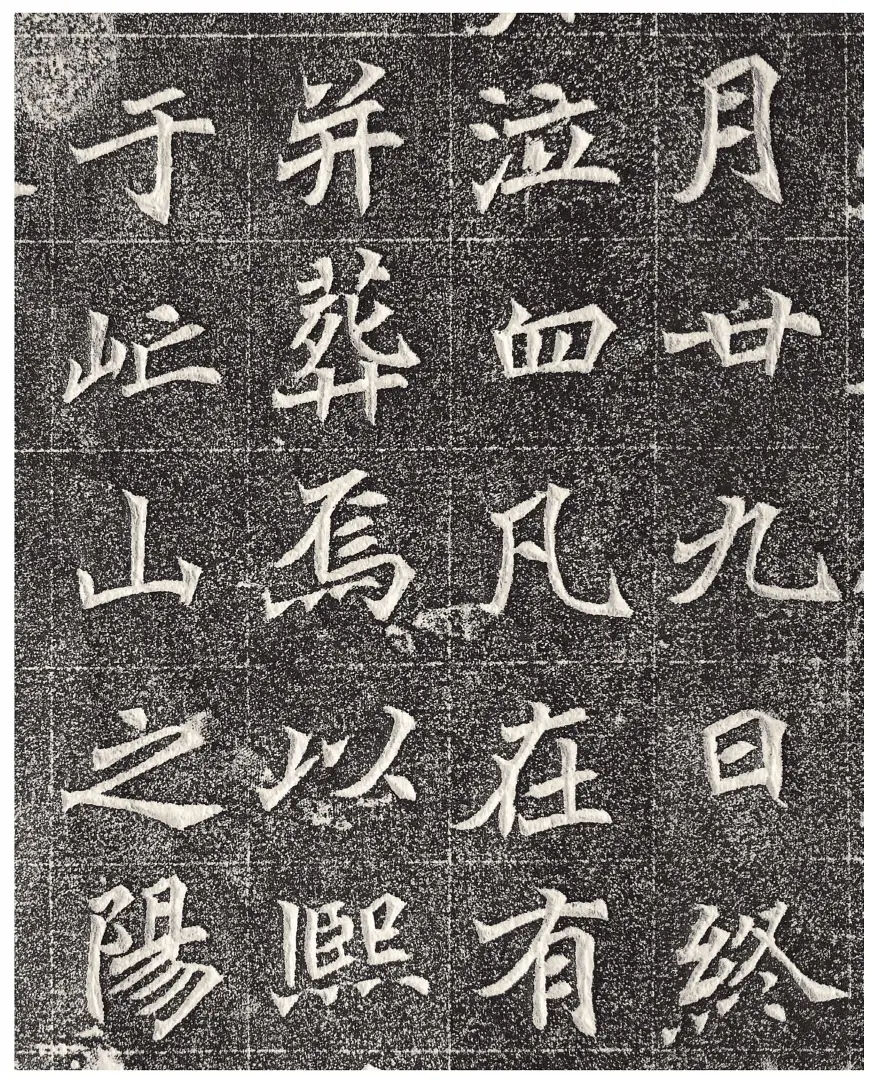 月廿九日終
泣四凡在有
并葬焉以熙
于山之陽